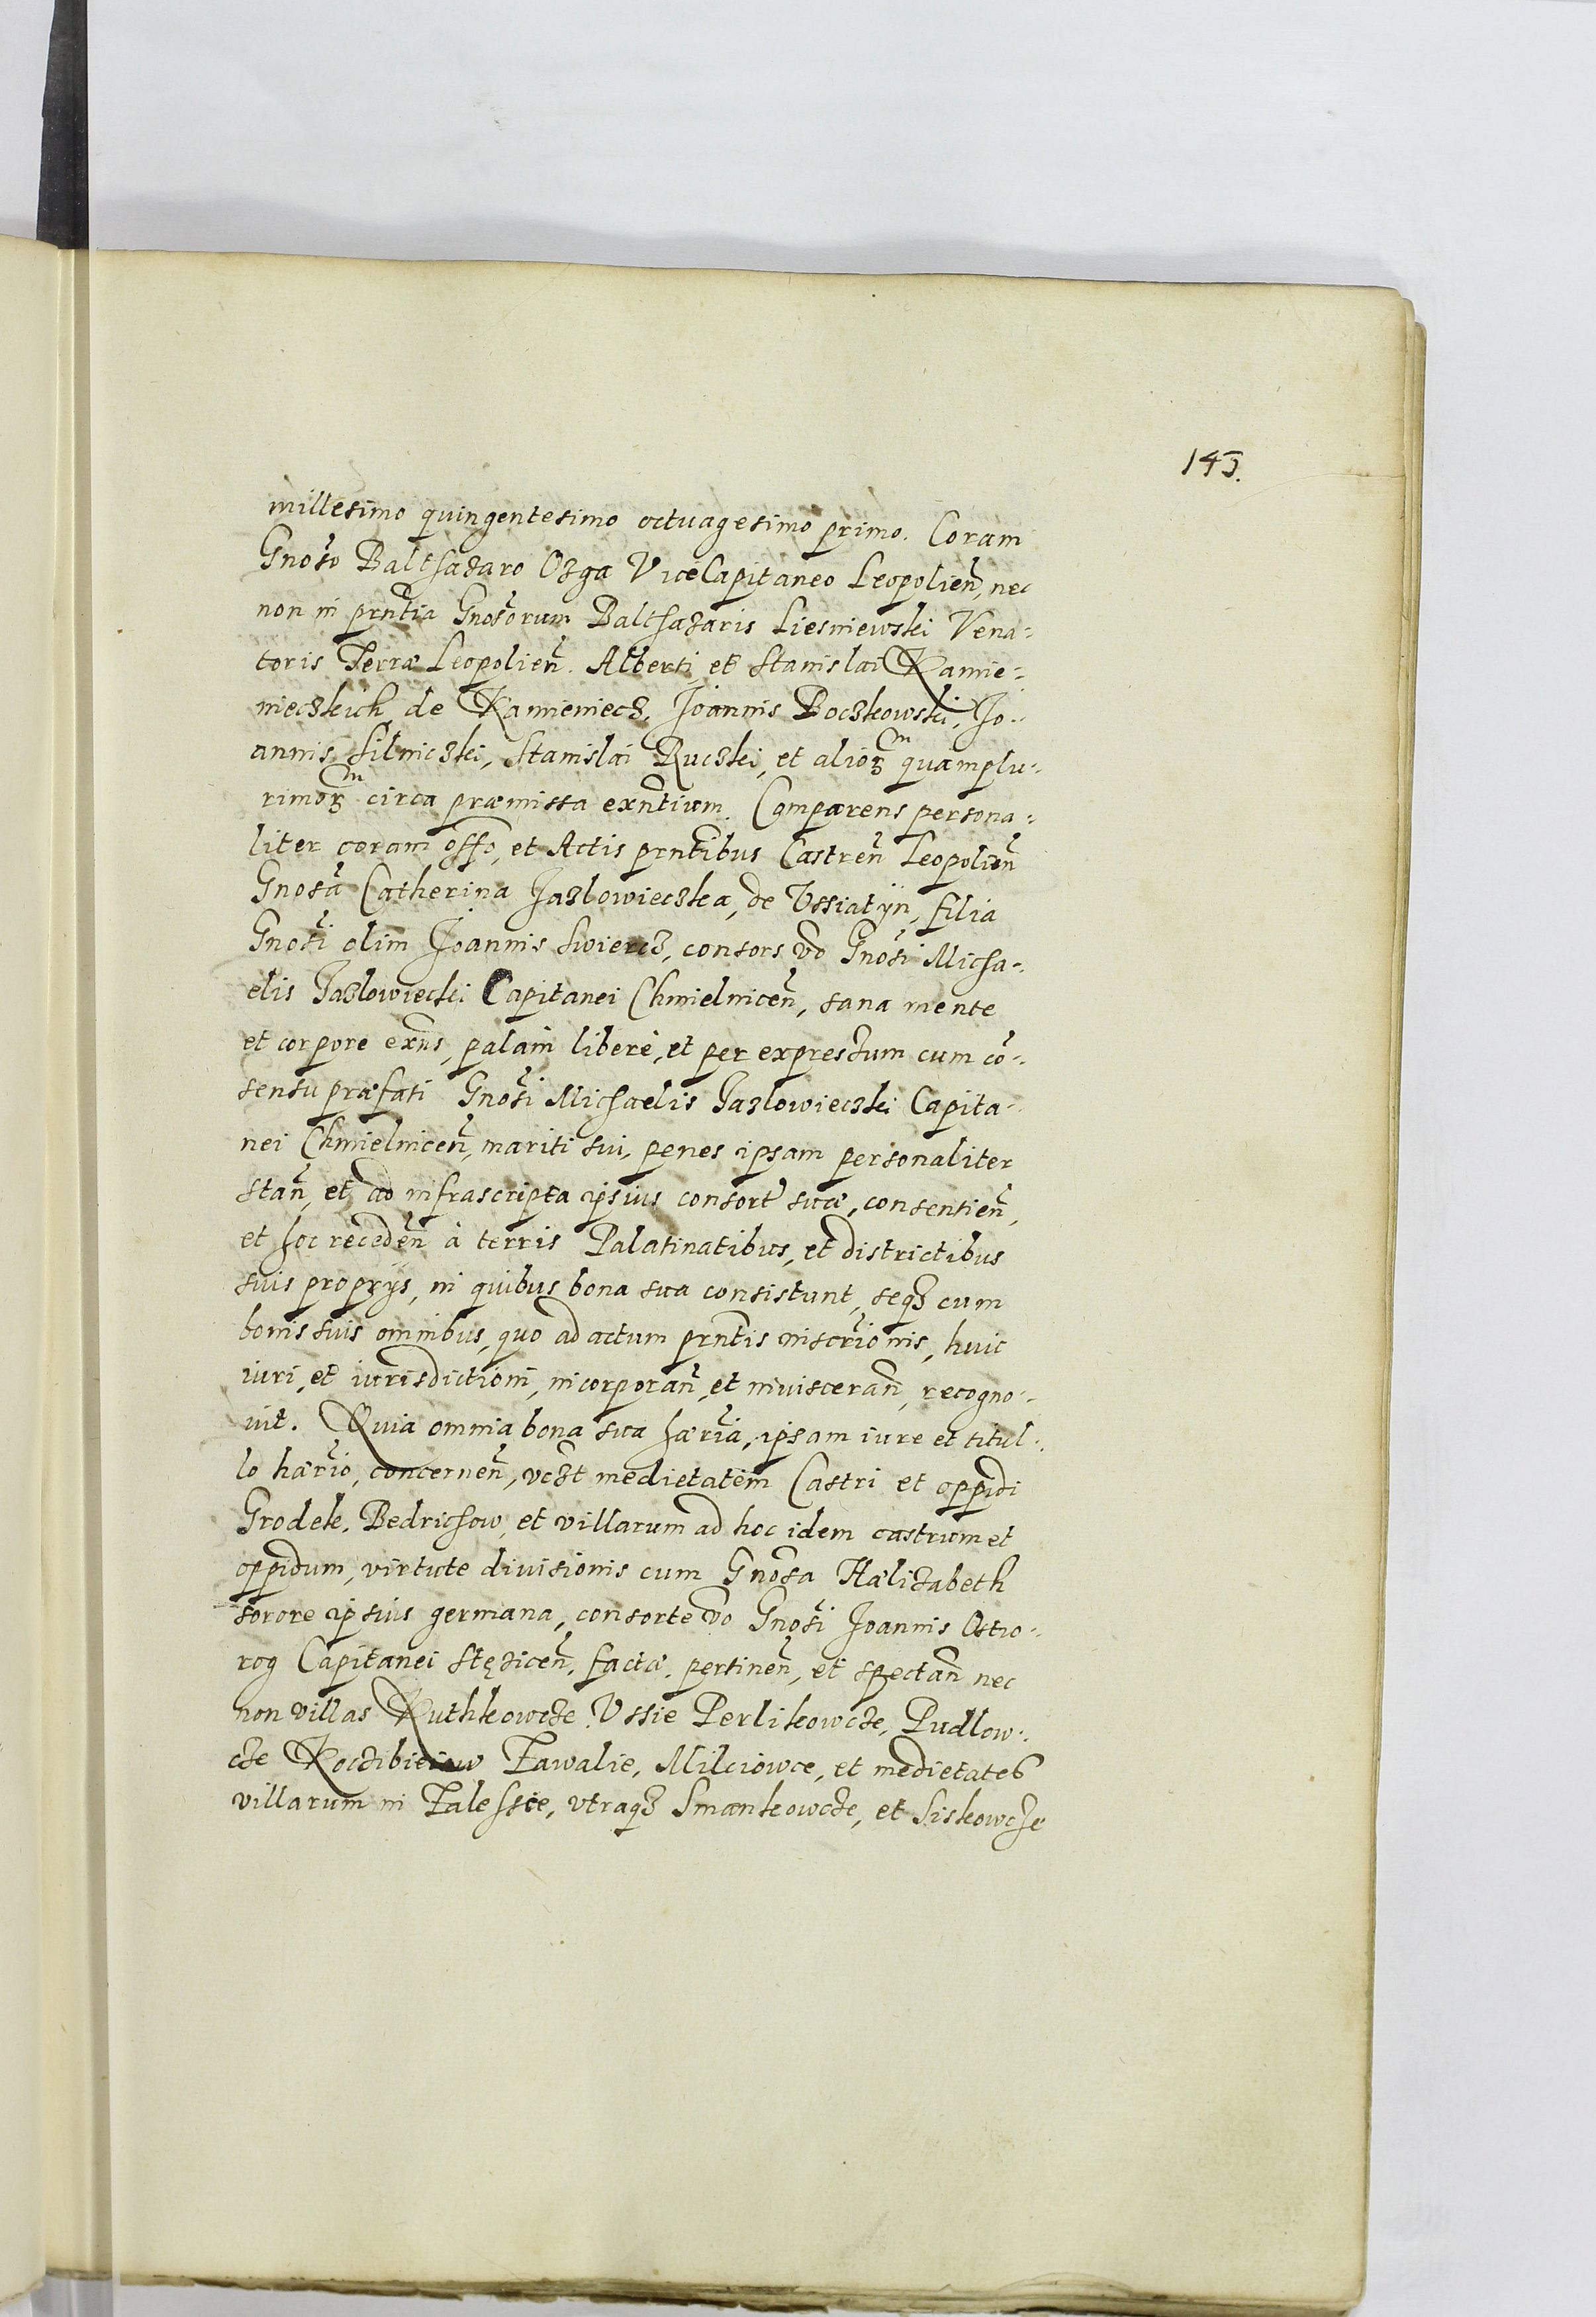 145.
millesimo quingentesimo octuagesimo primo. Coram
Gnoso Balthazaro Ozga ViceCapitaneo Leopolien, nec
non in prntia Gnosorum Balthazaris Liesniewski Vena=
toris Terræ Leopolien. Alberti et Stanislai Kamie=
nieczkich de Kamieniecz, Joannis Boczkowski, Jo=
annis Silniczki, Stanislai Ruczki, et alioꝝ quamplu=
rimoꝝ circa præmissa exntium. Comparens persona=
liter coram offo, et Actis prntibus Castren Leopolien
Gnosa Catherina Jazlowieczka, de Vssiatÿn, filia
Gnosi olim Joannis Swiercz, consors vo Gnosi Micha=
elis Jazlowiecki Capitanei Chmielnicen, sana mente
et corpore exns, palam libere, et per expressum cum co=
sensu præfati Gnosi Michaelis Jazlowieczki Capita=
nei Chmielnicen, mariti sui, penes ipsam personaliter
stan, et ad infrascripta ipsius consort suæ, consentien,
et hoc receden à terris Palatinatibus, et districtibus
suis proprÿs, in quibus bona sua consistunt, seqꝫ cum
bonis suis omnibus, quo ad actum prntis inscrionis, huic
iuri, et iurisdictioni, incorporan, et inuisceran, recogno=
uit. Quia omnia bona sua hæria, ipsam iure et titul=
lo hærio, concernen, vczt medietatem Castri et oppidi
Grodek, Bedrichow, et villarum ad hoc idem castrum et
oppidum, virtute diuisionis cum Gnosa Hælizabeth
sorore ipsius germana, consorte vo Gnosi Joannis Ostro=
rog Capitanei Stęzicen, factæ, pertinen, et spectan nec
non villas Kuthkowcze Vssie Perlikowcze, Pudlow=
cze Zawalie, Milciowce, et medietates
villarum in Zalessie, vtraqꝫ Smankowcze, et Siskowcze